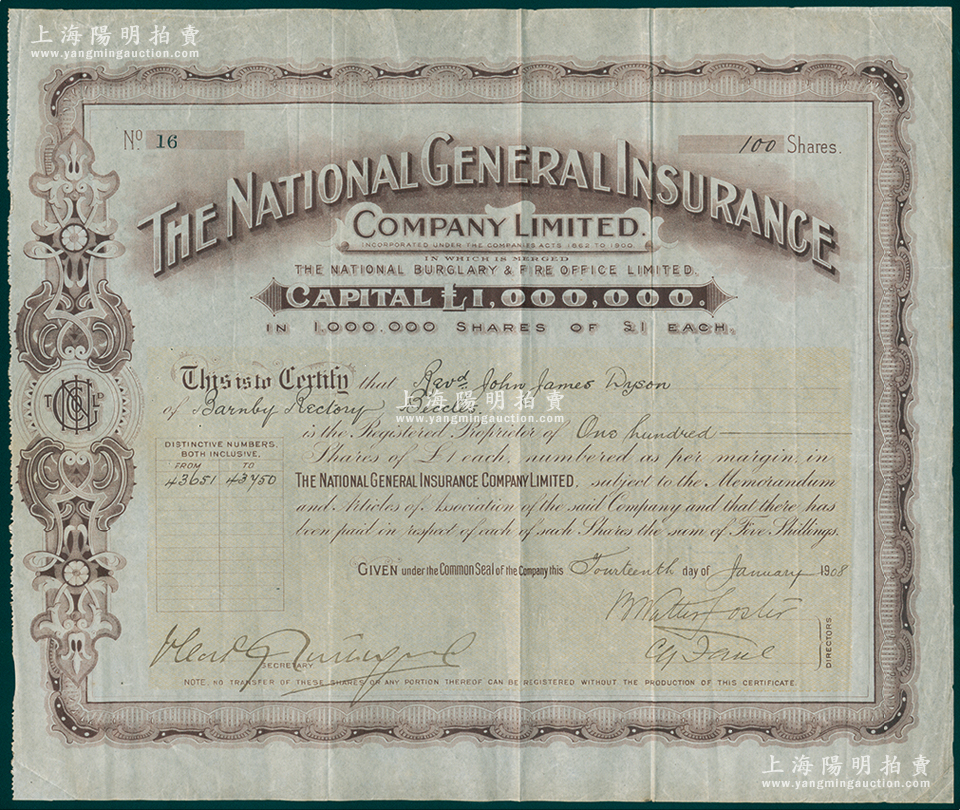 上海陽明拍賣
www.yangmingauction.com
上海陽明拍賣
www.yangmingauction.com
Nº 16
100 Shares.
THE NATIONAL GENERAL INSURANCE
COMPANY LIMITED.
INCORPORATED UNDER THE COMPANIES ACTS 1862 TO 1900.
IN WHICH IS MERGED
THE NATIONAL BURGLARY & FIRE OFFICE LIMITED.
CAPITAL £1,000,000.
IN 1,000,000 SHARES OF £1 EACH.
This is to Certify that Revd John James Dyson
of Barnby Rectory, Beccles
上海陽明拍賣
www.yangmingauction.com
is the Registered Proprietor of One hundred
Shares of £1 each, numbered as per margin, in
THE NATIONAL GENERAL INSURANCE COMPANY LIMITED, subject to the Memorandum
and Articles of Association of the said Company and that there has
been paid in respect of each of such Shares the sum of Five Shillings.
DISTINCTIVE NUMBERS,
BOTH INCLUSIVE.
FROM TO
43651 43750
T LD
GIVEN under the Common Seal of the Company this Fourteenth day of January 1908
B Walter Foster
DIRECTORS.
SECRETARY
NOTE, NO TRANSFER OF THESE SHARES OR ANY PORTION THEREOF CAN BE REGISTERED WITHOUT THE PRODUCTION OF THIS CERTIFICATE.
上海陽明拍賣
www.yangmingauction.com